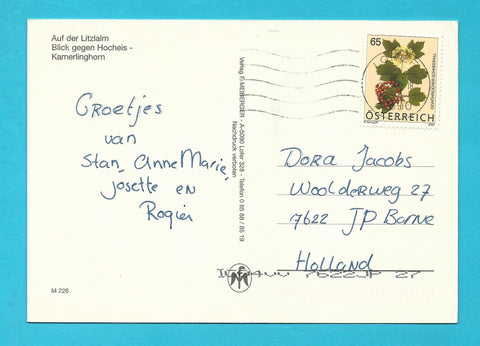 Auf der Litzlalm
Blick gegen Hocheis -
Kamerlinghorn
Groetjes
van
Stan, AnneMarie,
Josette en
Rogier
M 226
Verlag F. MEIBERGER - A-5090 Lofer 328 - Telefon 0 65 88 / 85 19
Nachdruck verboten
65
ÖSTERREICH
Dora Jacobs
Woolderweg 27
7622 JP Borne
Holland
7622JP 27